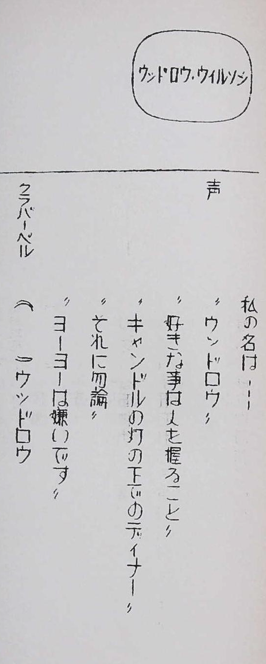 ウッドロウ・ウィルソン
声
私の名は・・・
〃ウンドロウ〃
〃好きな事は人を握ること〃
〃キャンドルの灯の下でのディナー〃
〃それに勿論〃
〃ヨーヨーは嫌いです〃
クラバーベル
（　）ウッドロウ